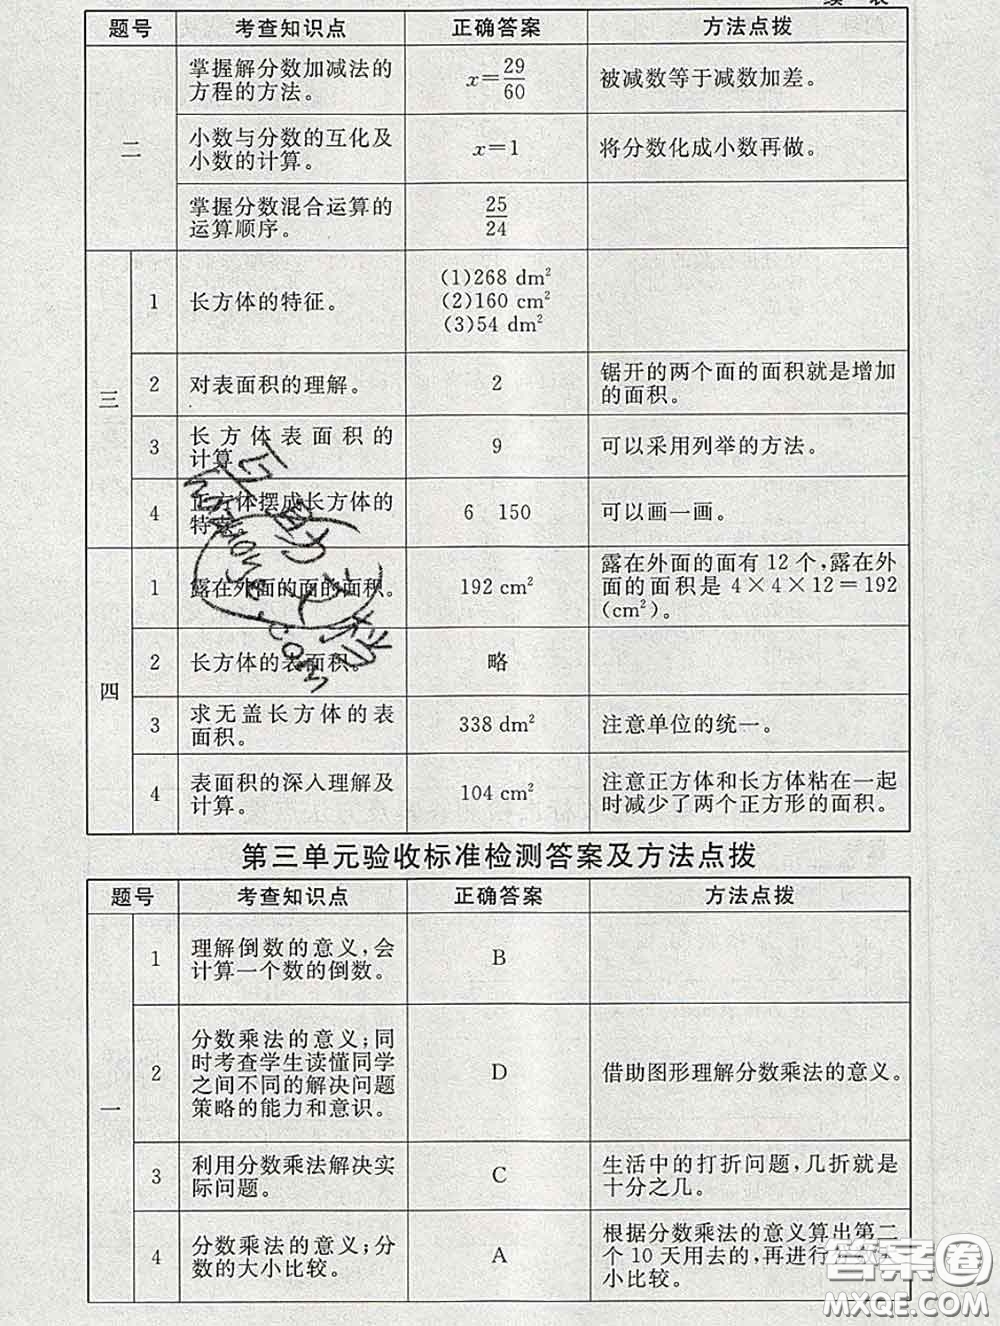 续 表
题号 考查知识点 正确答案 方法点拨
二
掌握解分数加减法的
方程的方法。
x=29/60
被减数等于减数加差。
小数与分数的互化及
小数的计算。
x=1
将分数化成小数再做。
掌握分数混合运算的
运算顺序。
25/24
三
1
长方体的特征。
(1)268 dm²
(2)160 cm²
(3)54 dm²
2
对表面积的理解。
2
锯开的两个面的面积就是增加
的面积。
3
长方体表面积的
计算。
9
可以采用列举的方法。
4
正方体摆成长方体的
特征。
6 150
可以画一画。
四
1
露在外面的面的面积。
192 cm²
露在外面的面有 12 个,露在外
面的面积是 4×4×12=192
(cm²)。
2
长方体的表面积。
略
3
求无盖长方体的表
面积。
338 dm²
注意单位的统一。
4
表面积的深入理解及
计算。
104 cm²
注意正方体和长方体粘在一起
时减少了两个正方形的面积。
第三单元验收标准检测答案及方法点拨
题号 考查知识点 正确答案 方法点拨
一
1
理解倒数的意义,会
计算一个数的倒数。
B
2
分数乘法的意义;同
时考查学生读懂同学
之间不同的解决问题
策略的能力和意识。
D
借助图形理解分数乘法的意义。
3
利用分数乘法解决实
际问题。
C
生活中的打折问题,几折就是
十分之几。
4
分数乘法的意义;分
数的大小比较。
A
根据分数乘法的意义算出第二
个 10 天用去的,再进行
小比较。
答案圈
MXQE.COM